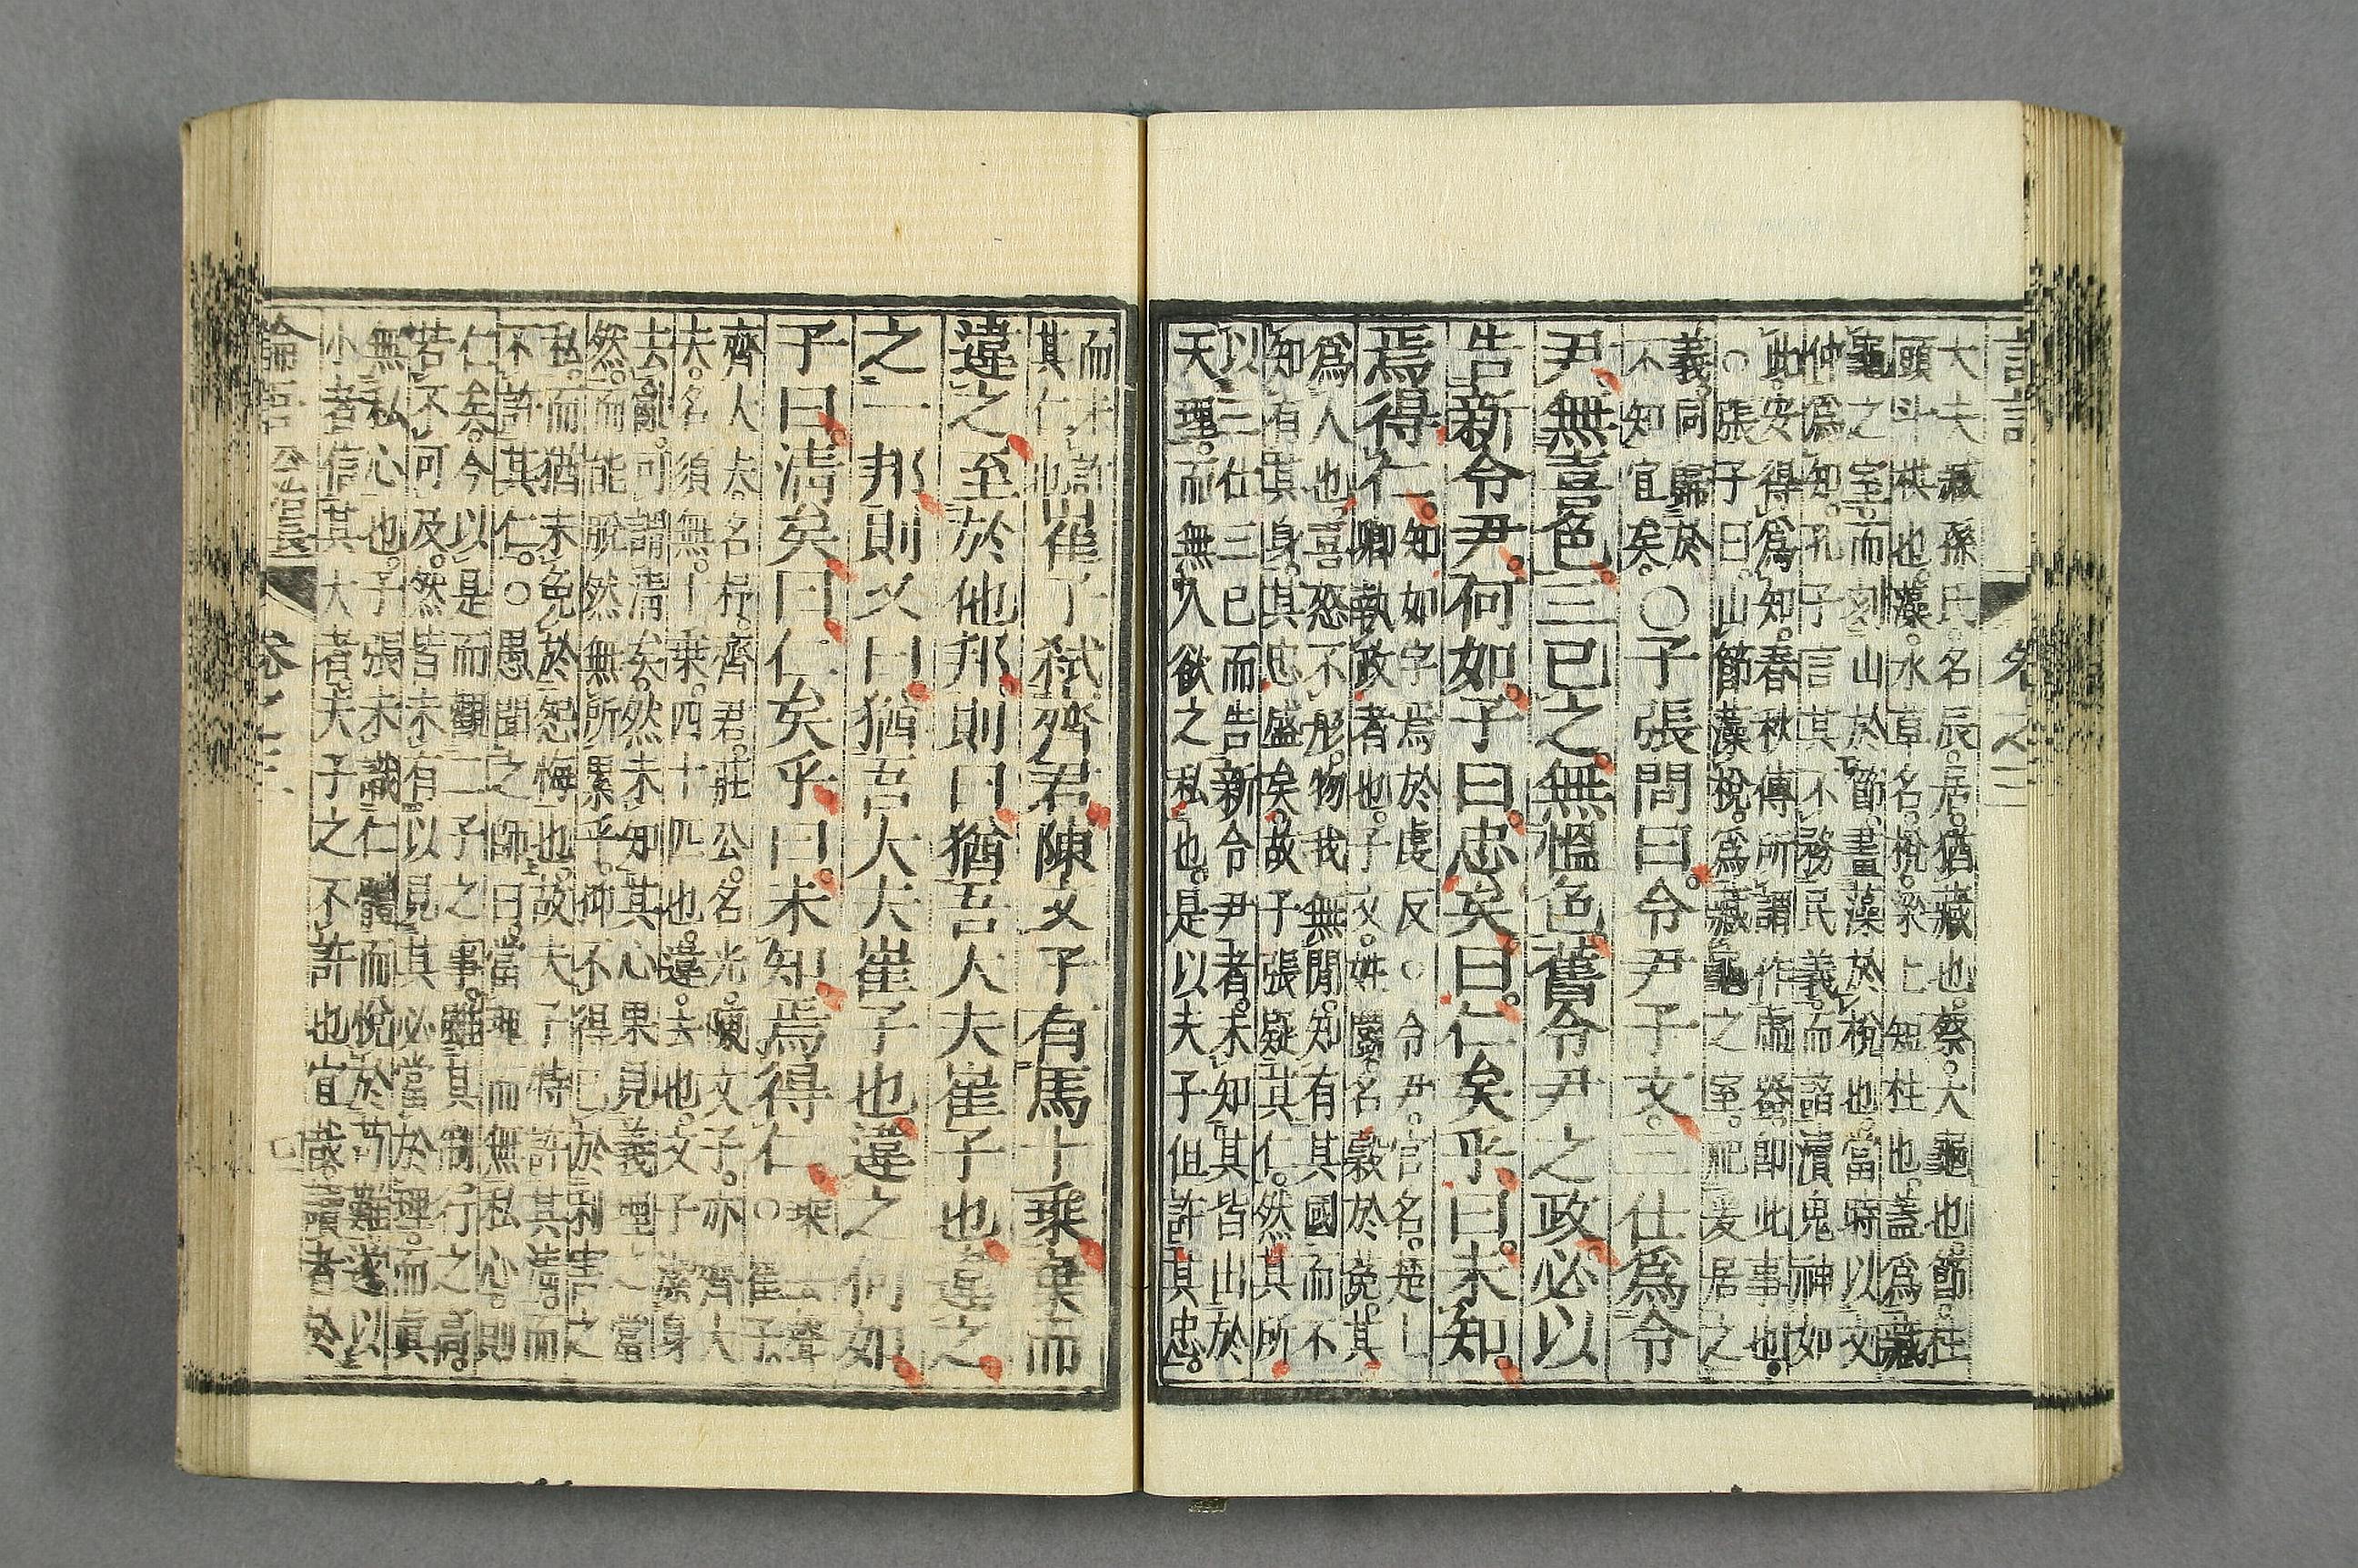 卷之三
大夫臧孫氏。名辰。居。猶藏也。蔡。大龜也。節。柱
頭斗栱也。藻。水草名。梲。梁上短柱也。蓋爲藏
龜之室。而刻山於節。畫藻於梲也。當時以文
仲爲知。孔子言其不務民義。而諂瀆鬼神如
此。安得爲知。春秋傳所謂作虛器。卽此事也。
○張子曰。山節藻梲。爲藏龜之室。祀爰居之
義。同歸於
不知宜矣。○子張問曰。令尹子文。三仕爲令
尹。無喜色。三已之。無慍色。舊令尹之政。必以
告新令尹。何如。子曰。忠矣。曰。仁矣乎。曰。未知。
焉得仁。知如字焉於虔反。○令尹。官名。楚上
卿執政者也。子文。姓鬭。名穀於菟。其
爲人也。喜怒不形。物我無閒。知有其國而不
知有其身。其忠盛矣。故子張疑其仁。然其所
以三仕三已而告新令尹者。未知其皆出於
天理。而無人欲之私也。是以夫子但許其忠。
而未許
其仁也崔子弑齊君。陳文子有馬十乘。棄而
違之。至於他邦。則曰。猶吾大夫崔子也。違之。
之一邦。則又曰。猶吾大夫崔子也。違之。何如。
子曰。清矣。曰。仁矣乎。曰。未知。焉得仁。乘去聲
○崔子。
齊大夫。名杼。齊君。莊公。名光。陳文子。亦齊大
夫。名須無。十乘。四十匹也。違。去也。文子潔身
去亂。可謂清矣。然未知其心果見義理之當
然。而能脫然無所累乎。抑不得已於利害之
私。而猶未免於怨悔也。故夫子特許其清。而
不許其仁。○愚聞之師。曰。當理而無私心。則
仁矣。今以是而觀二子之事。雖其制行之高。
若不可及。然皆未有以見其必當於理。而眞
無私心也。子張未識仁體。而悅於苟難。遂以
小者信其大者。夫子之不許也宜哉。讀者於
論語 公冶長 卷之三